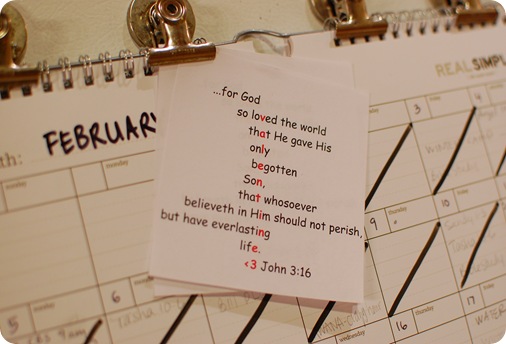 REAL SIMPL
FEBRUARY
th:
...for God
so loved the world
that He gave His
only
begotten
Son,
that whosoever
believeth in Him should not perish,
but have everlasting
life.
<3 John 3:16
monday
wednesday
3
4
5
6
9
10
16
17